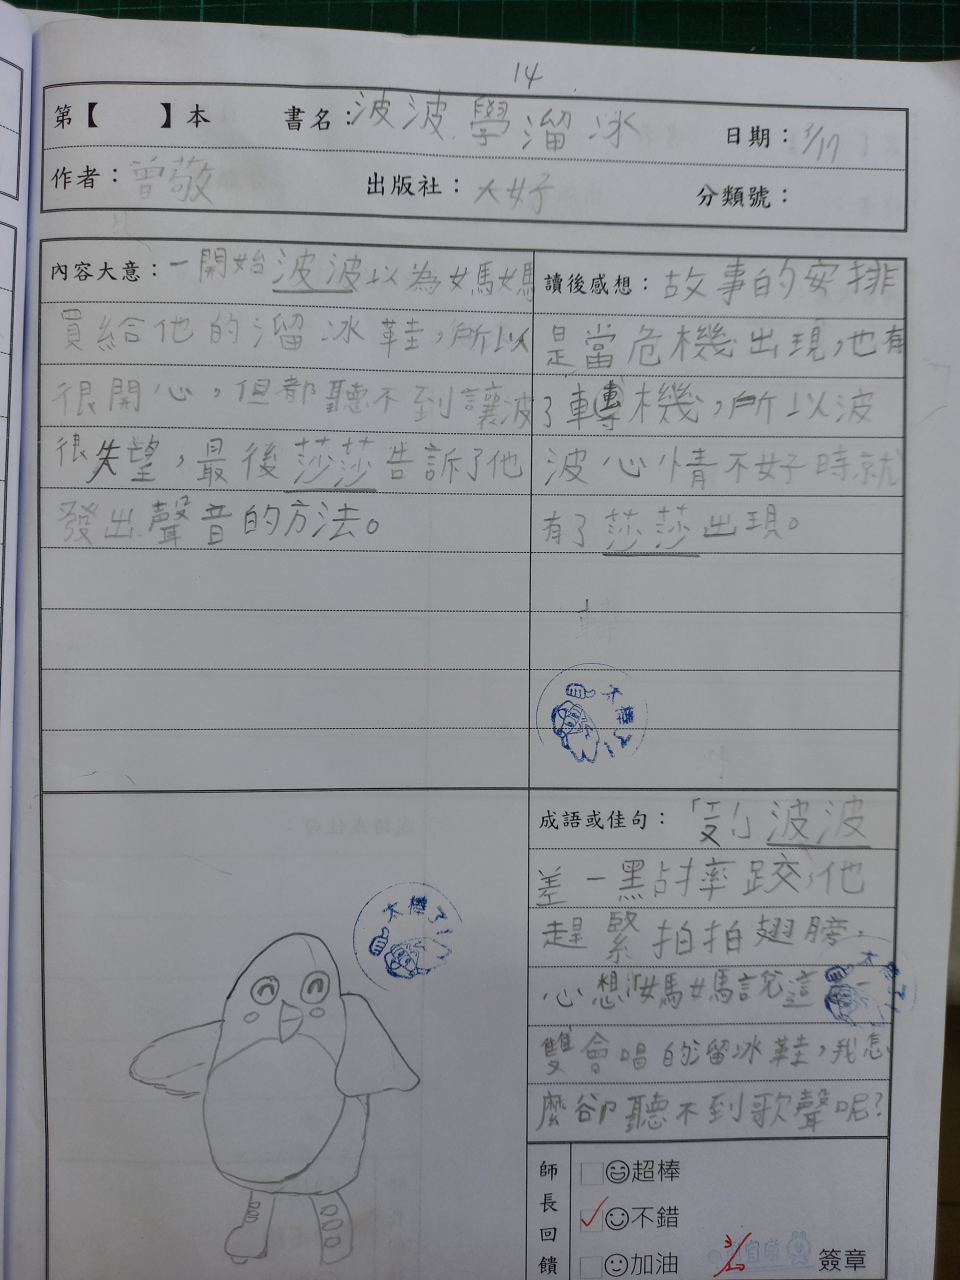 14
第【 】本 書名：波波學溜冰 日期：3/17
作者：曾敬 出版社：大好 分類號：
內容大意：一開始波波以為媽媽
買給他的溜冰鞋，所以
很開心，但都聽不到讓波
很失望，最後莎莎告訴了他
發出聲音的方法。
讀後感想：故事的安排
是當危機出現，也有
了轉機，所以波
波心情不好時就
有了莎莎出現。
太棒了！
太棒了！
成語或佳句：「
波波
差一點摔跤，他
趕緊拍拍翅膀，
心想：媽媽說這
雙會唱的溜冰鞋，我怎
麼卻聽不到歌聲呢？
太棒了！
師長回饋
超棒
不錯
加油
3/20 簽章